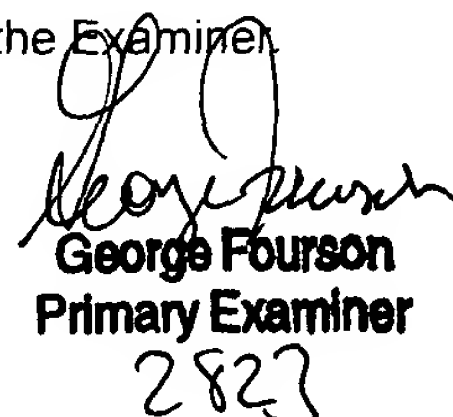 the Examiner.
George Fourson
George Fourson
Primary Examiner
2823